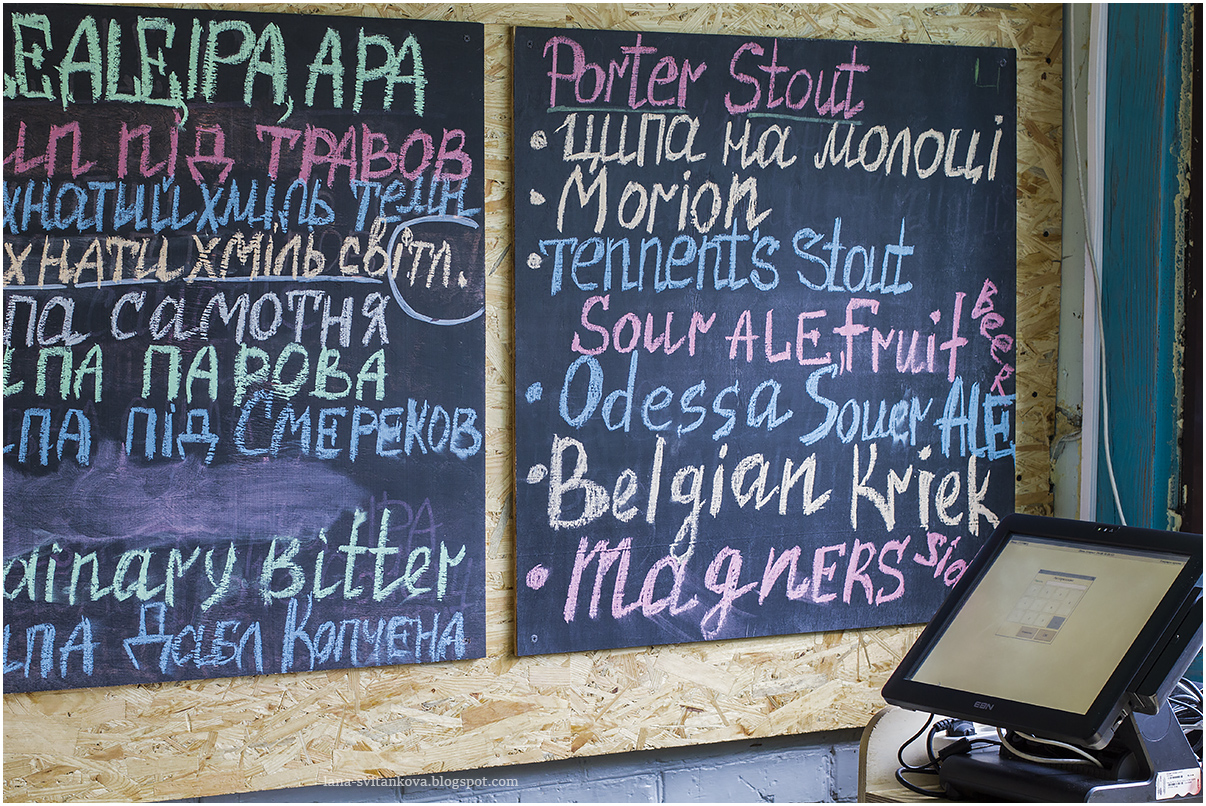 ALE,IPA, APA
під травов
хнатий хміль темн
хнати хміль світл.
па самотня
па парова
па під Смереков
IPA
dinary Bitter
па Дабл Копчена
Porter Stout
• Щипа на молоці
• Morion
• Tennent's Stout
Sour ALE, Fruit Beer
• Odessa Souer ALE
• Belgian Kriek
• MagnERS
EBN
lana-svitankova.blogspot.com